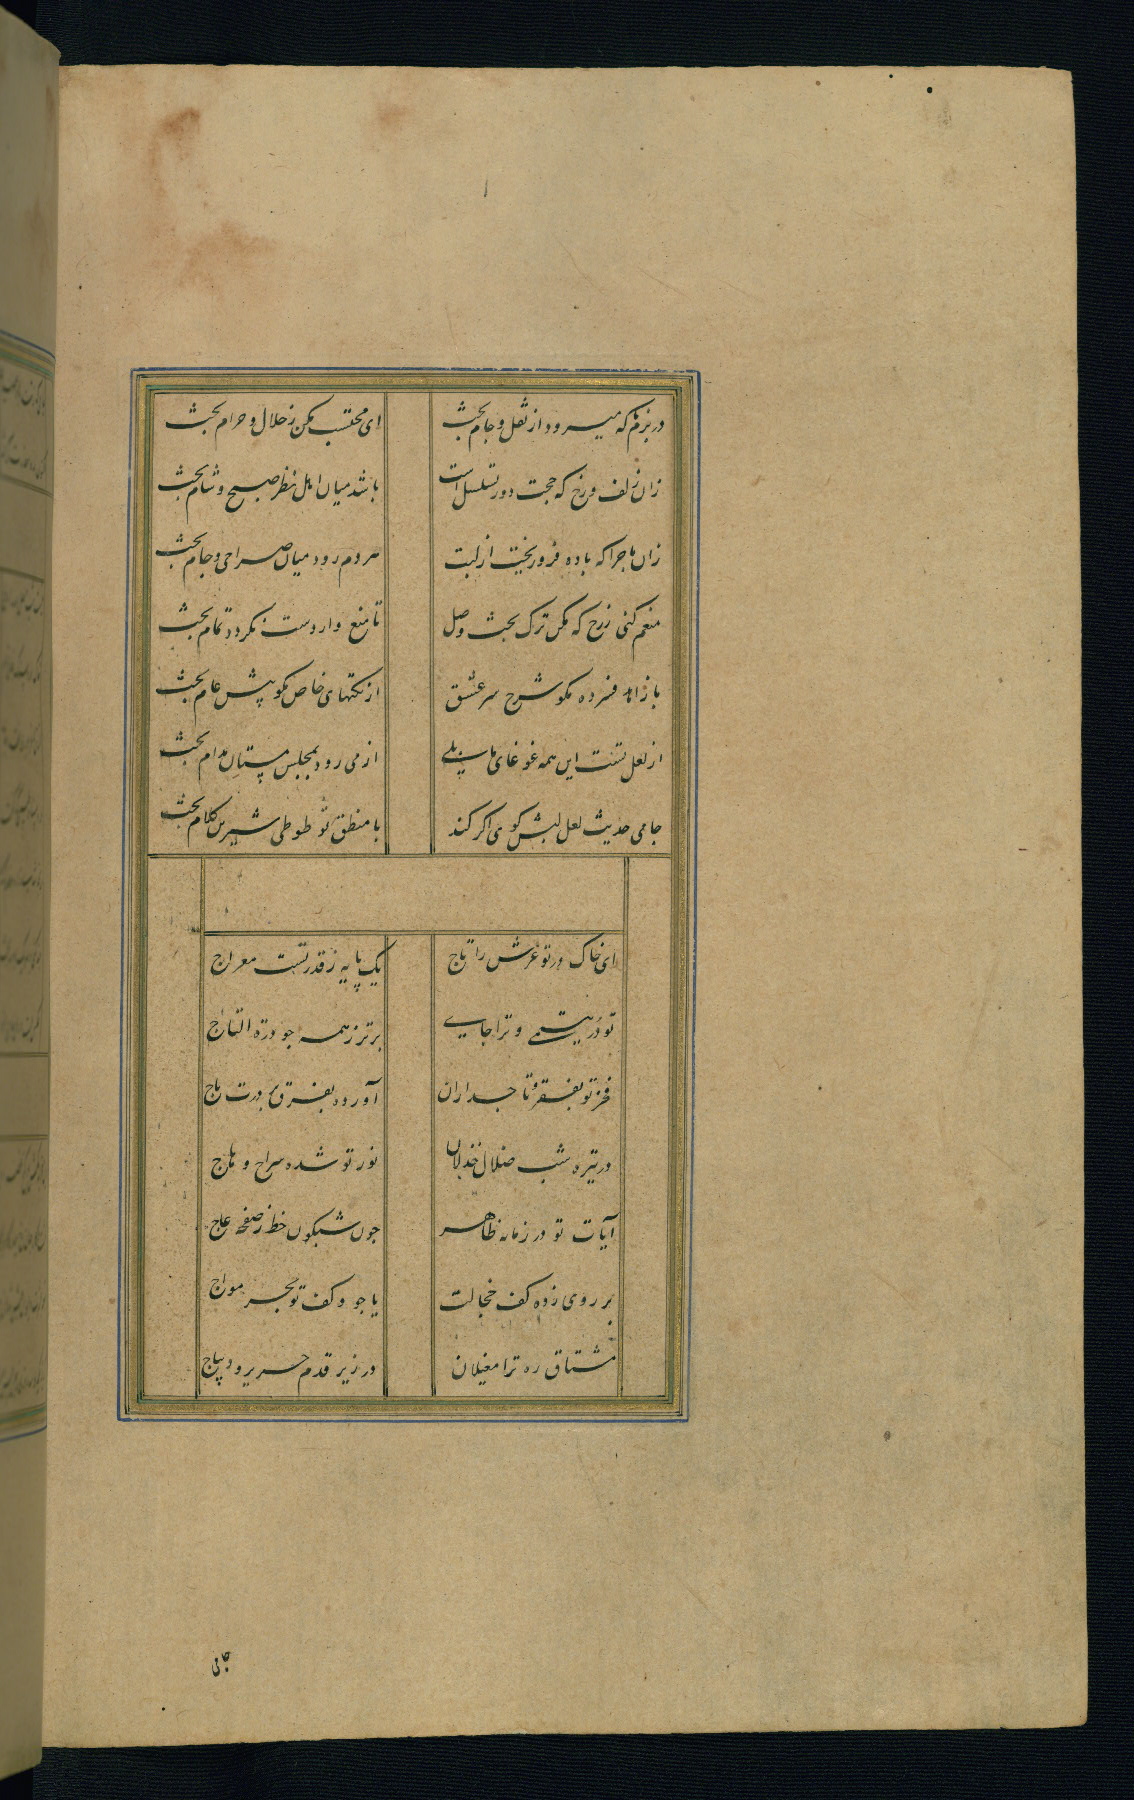 در بزم ما که میرود از نقل و جام بحث ای محتسب مکن ز حلال و حرام بحث
زان زلف و رخ که حجت دور تسلسل است باشد میان اهل نظر صبح و شام بحث
زان ماجرا که باده فرو ریخت از لبت هر دم رود میان صراحی و جام بحث
منعم کنی ز رخ که مکن ترک بحث وصل تا منع واردست نکردد تمام بحث
با زاهد فسرده مکو شرح سر عشق از نکتهای خاص مکو پیش عام بحث
از لعل تست این همه غوغای ما بلی از می رود بمجلس مستان مدام بحث
جامی حدیث لعل لبش کوی اکر کند با منطق تو طوطی شیرین کلام بحث
ای خاک در تو عرش را تاج یک پایه ز قدر تست معراج
تو در یتیمی و ترا جای برتر ز همه چو درة التاج
فخر تو بفقر و تاجداران آورده بفرق بر درت باج
در تیره شب ضلال و خذلان نور تو شده سراج وهاج
آیات تو در زمانه ظاهر چون شبکون خط ز صفحه عاج
بر روی زده کف خجالت با جود کف تو بحر مواج
مشتاق ره ترا مغیلان در زیر قدم حریر و دیباج